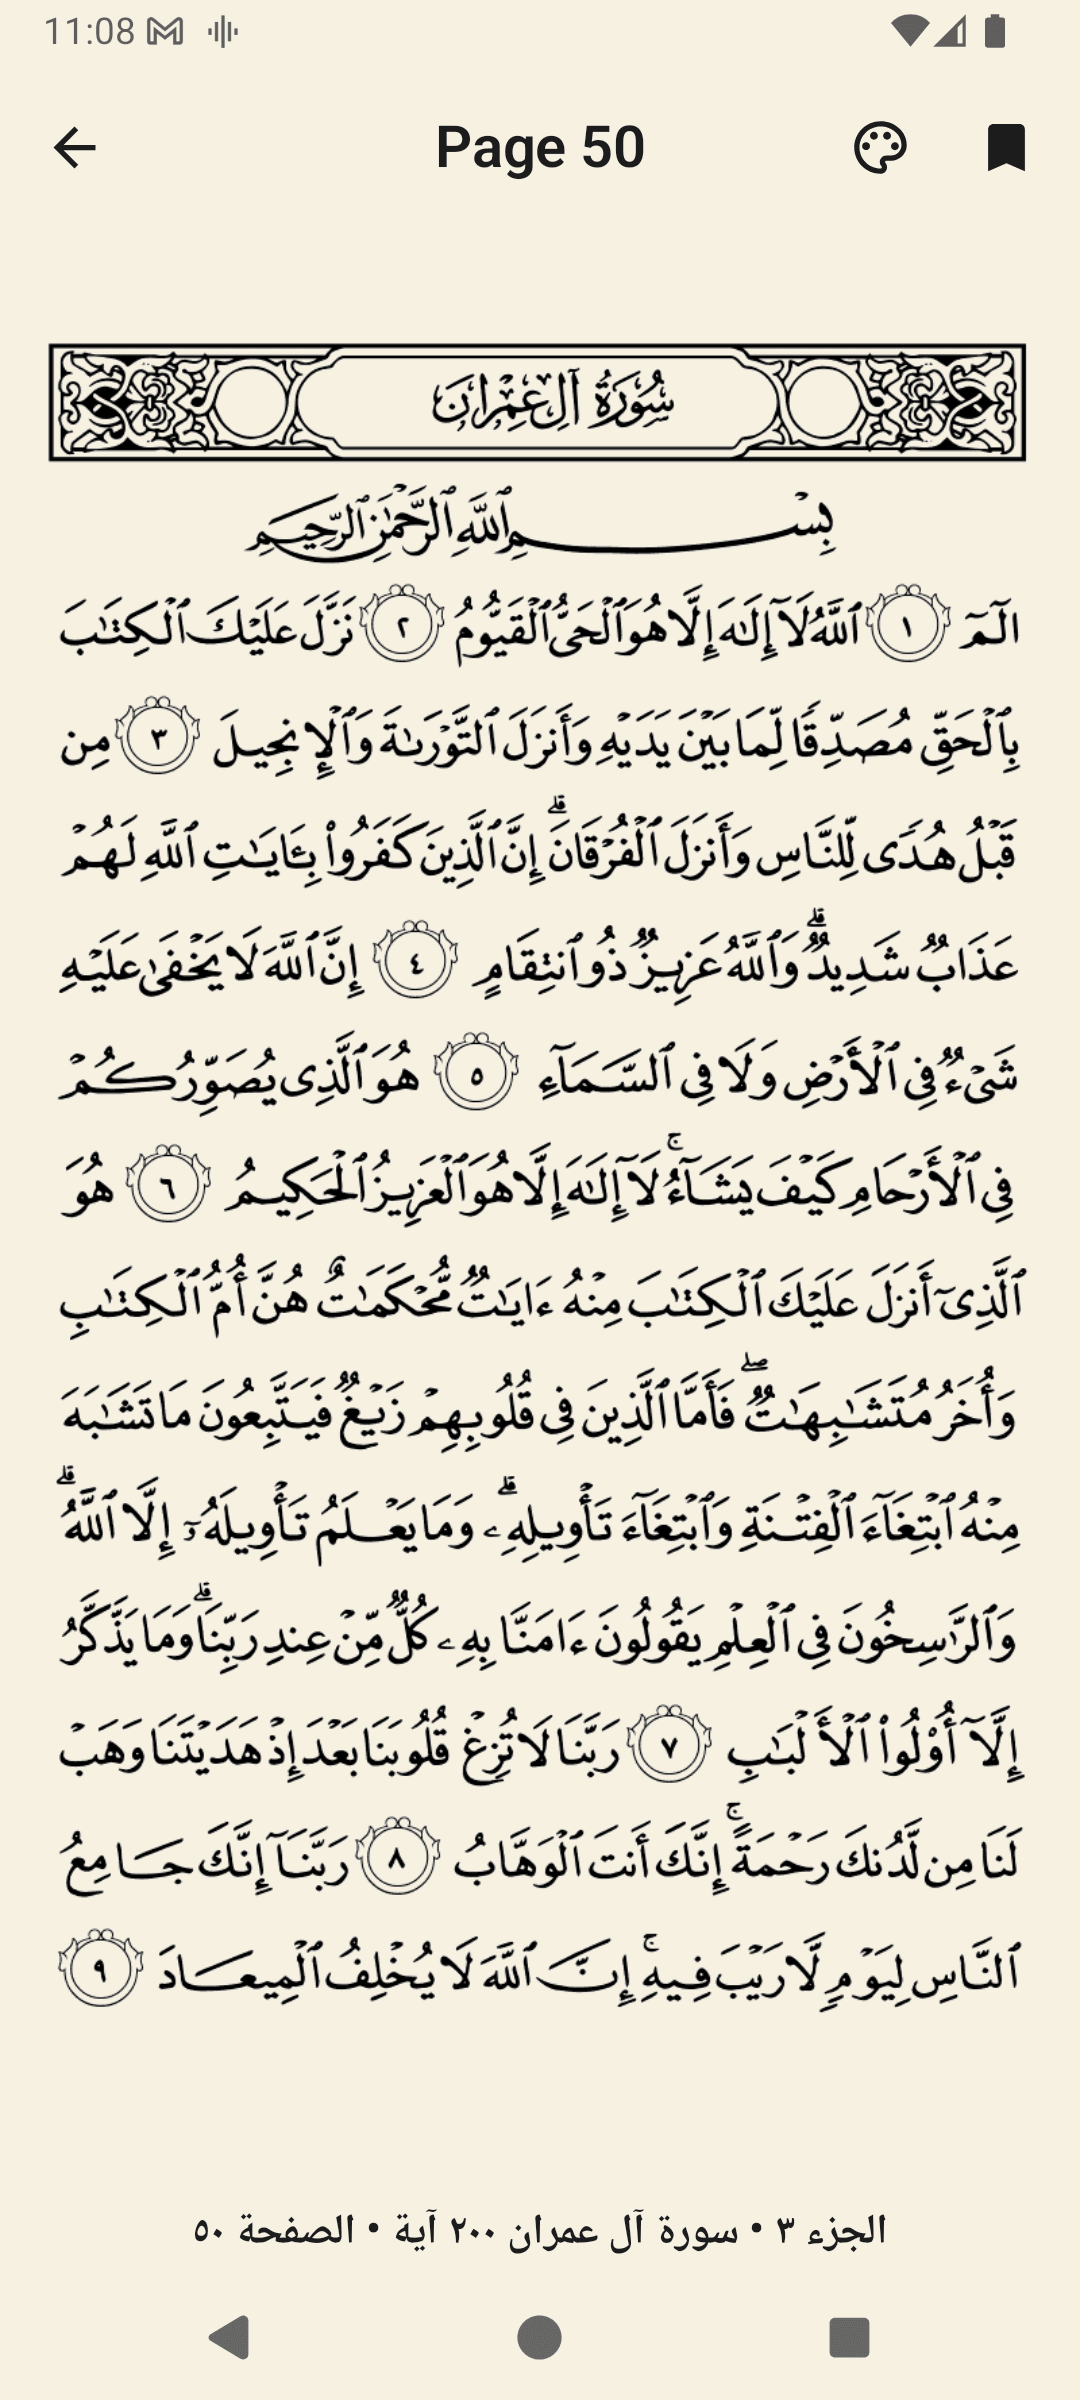 11:08
Page 50
سُورَةُ آلِ عِمۡرَان
بِسۡمِ ٱللَّهِ ٱلرَّحۡمَٰنِ ٱلرَّحِيمِ
الٓمٓ ١ ٱللَّهُ لَآ إِلَٰهَ إِلَّا هُوَ ٱلۡحَيُّ ٱلۡقَيُّومُ ٢ نَزَّلَ عَلَيۡكَ ٱلۡكِتَٰبَ
بِٱلۡحَقِّ مُصَدِّقٗا لِّمَا بَيۡنَ يَدَيۡهِ وَأَنزَلَ ٱلتَّوۡرَىٰةَ وَٱلۡإِنجِيلَ ٣ مِن
قَبۡلُ هُدٗى لِّلنَّاسِ وَأَنزَلَ ٱلۡفُرۡقَانَۗ إِنَّ ٱلَّذِينَ كَفَرُواْ بِـَٔايَٰتِ ٱللَّهِ لَهُمۡ
عَذَابٞ شَدِيدٞۗ وَٱللَّهُ عَزِيزٞ ذُو ٱنتِقَامٍ ٤ إِنَّ ٱللَّهَ لَا يَخۡفَىٰ عَلَيۡهِ
شَيۡءٞ فِي ٱلۡأَرۡضِ وَلَا فِي ٱلسَّمَآءِ ٥ هُوَ ٱلَّذِي يُصَوِّرُكُمۡ
فِي ٱلۡأَرۡحَامِ كَيۡفَ يَشَآءُۚ لَآ إِلَٰهَ إِلَّا هُوَ ٱلۡعَزِيزُ ٱلۡحَكِيمُ ٦ هُوَ
ٱلَّذِيٓ أَنزَلَ عَلَيۡكَ ٱلۡكِتَٰبَ مِنۡهُ ءَايَٰتٞ مُّحۡكَمَٰتٌ هُنَّ أُمُّ ٱلۡكِتَٰبِ
وَأُخَرُ مُتَشَٰبِهَٰتٞۖ فَأَمَّا ٱلَّذِينَ فِي قُلُوبِهِمۡ زَيۡغٞ فَيَتَّبِعُونَ مَا تَشَٰبَهَ
مِنۡهُ ٱبۡتِغَآءَ ٱلۡفِتۡنَةِ وَٱبۡتِغَآءَ تَأۡوِيلِهِۦۗ وَمَا يَعۡلَمُ تَأۡوِيلَهُۥٓ إِلَّا ٱللَّهُۗ
وَٱلرَّٰسِخُونَ فِي ٱلۡعِلۡمِ يَقُولُونَ ءَامَنَّا بِهِۦ كُلّٞ مِّنۡ عِندِ رَبِّنَاۗ وَمَا يَذَّكَّرُ
إِلَّآ أُوْلُواْ ٱلۡأَلۡبَٰبِ ٧ رَبَّنَا لَا تُزِغۡ قُلُوبَنَا بَعۡدَ إِذۡ هَدَيۡتَنَا وَهَبۡ
لَنَا مِن لَّدُنكَ رَحۡمَةًۚ إِنَّكَ أَنتَ ٱلۡوَهَّابُ ٨ رَبَّنَآ إِنَّكَ جَامِعُ
ٱلنَّاسِ لِيَوۡمٖ لَّا رَيۡبَ فِيهِۚ إِنَّ ٱللَّهَ لَا يُخۡلِفُ ٱلۡمِيعَادَ ٩
الجزء ٣ • سورة آل عمران ٢٠٠ آية • الصفحة ٥٠